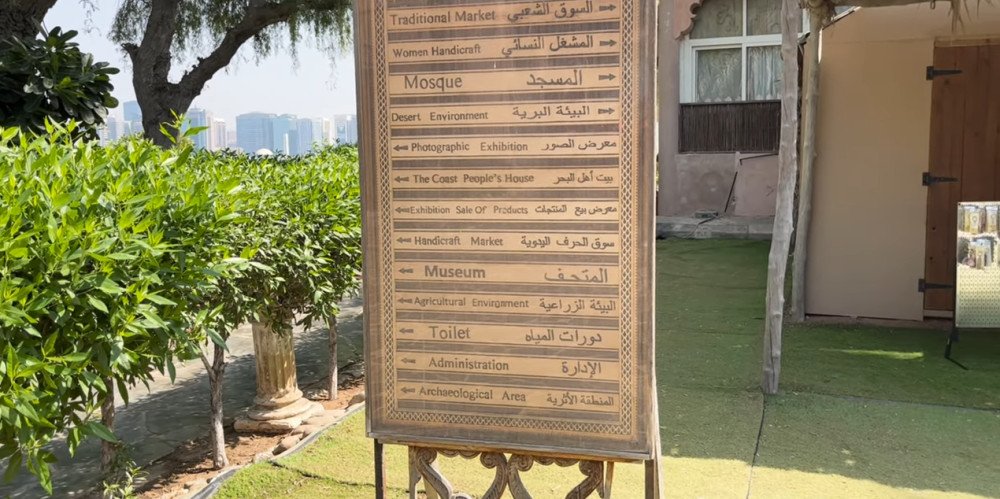 Traditional Market السوق الشعبي
Women Handicraft المشغل النسائي
Mosque المسجد
Desert Environment البيئة البرية
Photographic Exhibition معرض الصور
The Coast People's House بيت أهل البحر
Exhibition Sale Of Products معرض بيع المنتجات
Handicraft Market سوق الحرف اليدوية
Museum المتحف
Agricultural Environment البيئة الزراعية
Toilet دورات المياه
Administration الإدارة
Archaeological Area المنطقة الأثرية